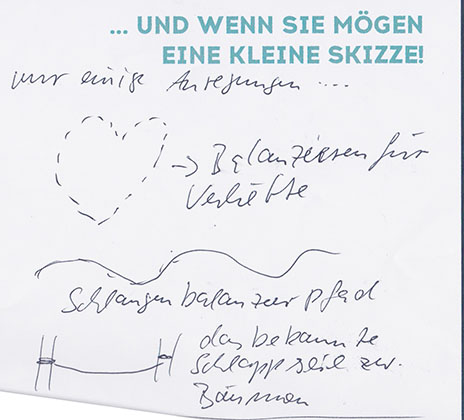 ... UND WENN SIE MÖGEN
EINE KLEINE SKIZZE!
nur einige Anregungen ....
→ Balanzieren für
Verliebte
Schlangenbalanzierpfad
das bekannte
Schlappseil zw.
Bäumen